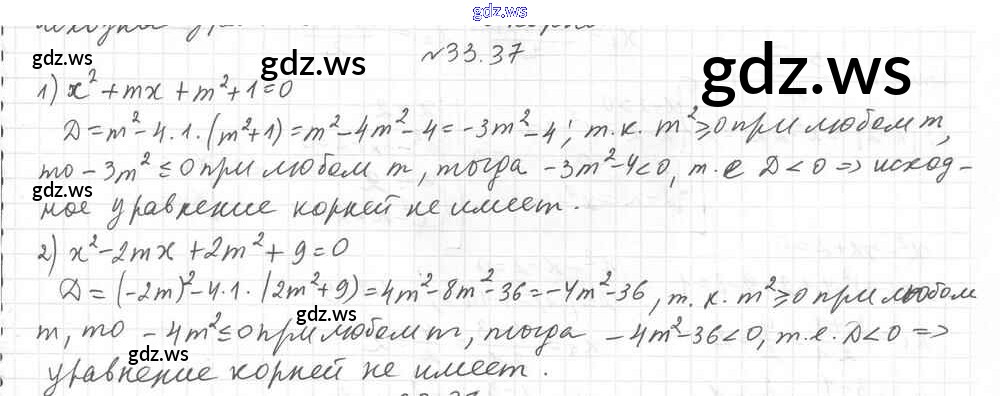 gdz.ws
№33.37
gdz.ws gdz.ws gdz.ws
1) x²+mx+m²+1=0
D=m²-4·1·(m²+1)=m²-4m²-4=-3m²-4; т.к. m²≥0 при любом m,
то -3m²≤0 при любом m, тогда -3m²-4<0, т.е D<0 => исход-
gdz.ws
ное уравнение корней не имеет.
2) x²-2mx+2m²+9=0
D=(-2m)²-4·1·(2m²+9)=4m²-8m²-36=-4m²-36, т.к. m²≥0 при любом
gdz.ws
m, то -4m²≤0 при любом m, тогда -4m²-36<0, т.е. D<0 =>
gdz.ws
уравнение корней не имеет.